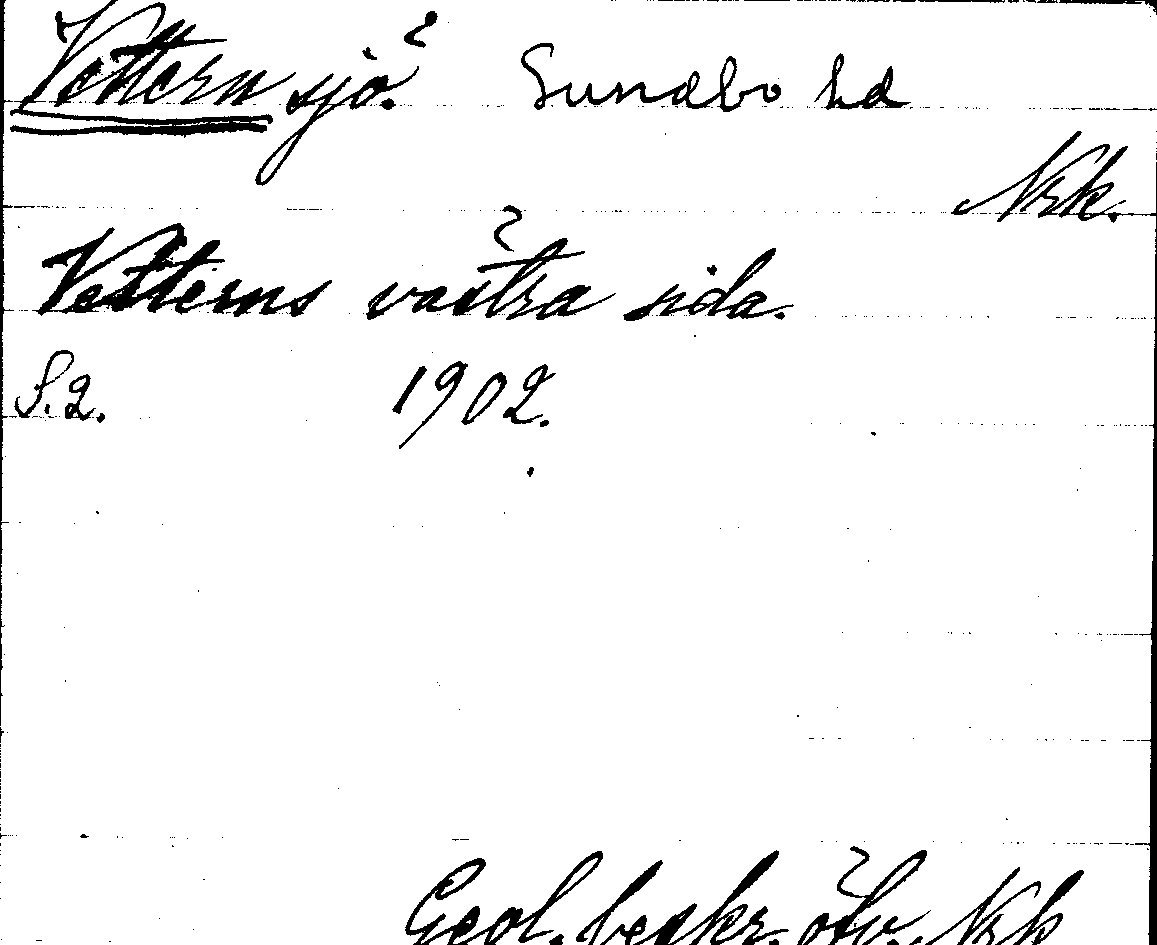 Vettern sjö. Sundbo hd
Nrk.
Vetterns västra sida.
S. 2. 1902.
Geol. beskr. öfv. Nrk